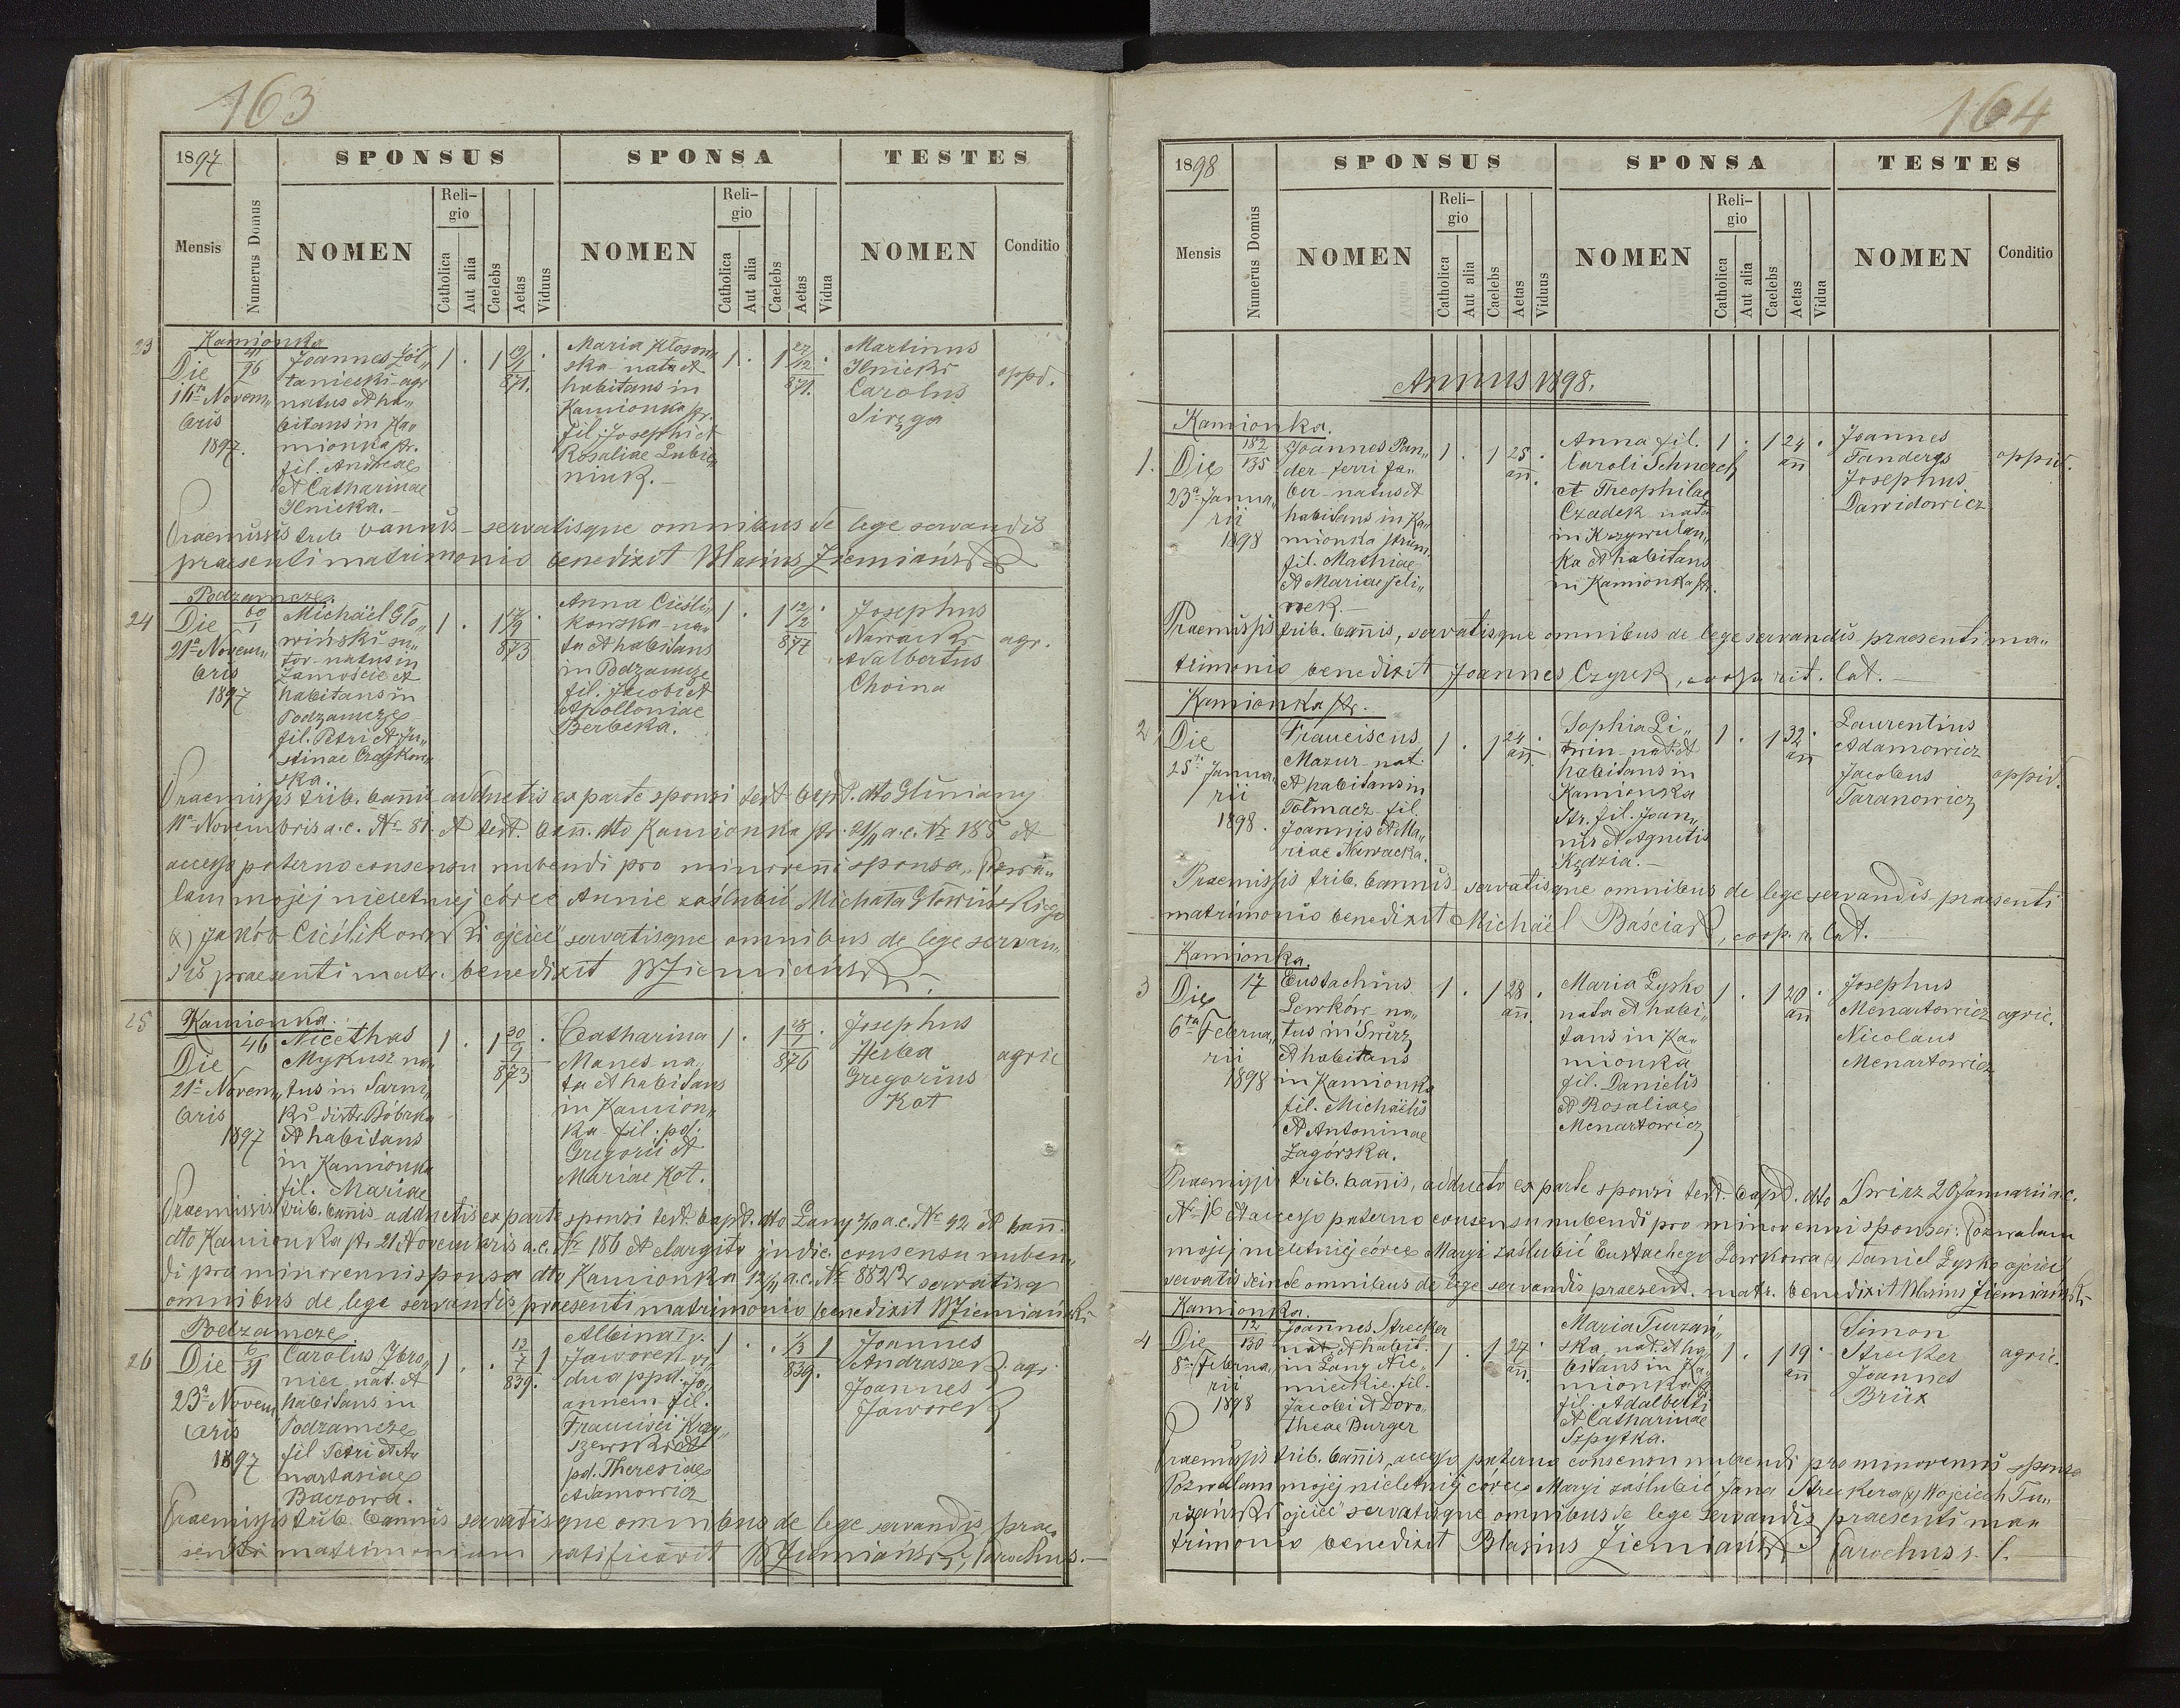 163
1897
SPONSUS
SPONSA
TESTES
Mensis
Numerus Domus
NOMEN
Religio
Catholica
Aut alia
Caelebs
Aetas
Viduus
NOMEN
Religio
Catholica
Aut alia
Caelebs
Aetas
Vidua
NOMEN
Conditio
23
Kamionka
Die
Novem„
bris
1897.
41/96
Joannes Żół„
taniecki agr
natus et ha„
bitans in Ka„
mionka str.
fil. Andreae
et Catharinae
Ilnicka.
1 . 1 19/1 871. .
Maria Kłosow„
ska nata et
habitans in
Kamionka str.
fil. Josephi et
Rosaliae Lubie„
niuk.
1 . 1 27/12 871. .
Martinus
Ilnicki
Carolus
Siręga
oppd.
Praemissis trib bannis servatisque omnibus de lege servandis
praesenti matrimonio benedixit Blasius Ziemiański
24
Podzamcze.
Die
21a Novem„
bris
1897
60/1
Michaël Gło„
wiński su„
tor natus in
Zamoście et
habitans in
Podzamcze
fil. Petri et Ju„
stinae Crajkow„
ska.
1 . 1 17/9 873 .
Anna Cieśli„
kowska na„
ta et habitans
in Podzamcze
fil. Jacobi et
Apolloniae
Berbeka.
1 . 1 12/2 877 .
Josephus
Nawarki
Adalbertus
Choina
agr.
Praemissis trib. bannis adductis ex parte sponsi test bapt. dto Gliniany
11a Novembris a.c. No 81. et test. bann. dto Kamionka str. 21/11 a.c. Nr 185 et
accesso paterno consensu nubendi pro minorenni sponsa „Pozwa„
lam mojej nieletniej córce Annie zaślubić Michała Głowińskiego
(x) Jakób Cieślikowski ojciec" servatisque omnibus de lege servan„
dis praesenti matr. benedixit BZiemiański.
25
Kamionka.
Die
21a Novem„
bris
1897
46
Nicethas
Mykusz na„
tus in Sarni„
ki distr. Bóbrka
et habitans
in Kamionka
fil. Mariae
1 . 1 20/9 873 .
Catharina
Manes na„
ta et habitans
in Kamion„
ka fil. pd.
Gregorii et
Mariae Kot.
1 . 1 28/1 876 .
Josephus
Herba
Gregorius
Kot
agric
Praemissis trib. bannis adductis ex parte sponsi test bapt. dto Łany 2/10 a.c. No 92 et bann.
dto Kamionka str. 21 Novembris a.c. No 186 et elargito judic. consensu nuben„
di pro minorenni sponsa dto Kamionka 12/11 a.c. No 8822 servatisq
omnibus de lege servandis praesenti matrimonio benedixit BZiemiański
26
Podzamcze.
Die
23a Novem
bris
1897
6/31
Carolus Zbro„
nier nat. et
habitans in
Podzamcze
fil Petri et A„
nastasiae
Baczowa.
1 . . 13/7 839. 1
Albina Ty.
Jaworek vi„
dua ppd. Jo„
annem fil.
Francisci Krzy„
szewski et
pd. Theresiae
Adamowicz
1 . . 1/3 839. 1
Joannes
Andraszek
Joannes
Jaworek
agr.
Praemissis trib. bannis servatisque omnibus de lege servandis prae„
senti matrimonium ratificavit BZiemiański, Parochus.
164
1898
SPONSUS
SPONSA
TESTES
Mensis
Numerus Domus
NOMEN
Religio
Catholica
Aut alia
Caelebs
Aetas
Viduus
NOMEN
Religio
Catholica
Aut alia
Caelebs
Aetas
Vidua
NOMEN
Conditio
Annus 1898.
1.
Kamionka.
Die
23a Janua„
rii
1898
182/135
Joannes Pan„
der ferri fa„
ber natus et
habitans in Ka„
mionka strum.
fil. Mathiae
et Mariae Jeli„
nek.
1 . 1 25 ann. .
Anna fil.
Caroli Schnerch
et Theophilae
Czadek nata
in Krzywulan„
ka et habitans
in Kamionka str.
1 . 1 24 ann .
Joannes
Tanderys
Josephus
Dawidowicz
oppid.
Praemissis trib. bannis, servatisque omnibus de lege servandis praesenti ma„
trimonio benedixit Joannes Czyrek, coop. rit. lat.
2
Kamionka str.
Die
25ta Janua„
rii
1898.
Franciscus
Mazur nat.
et habitans in
Tołmacz fil.
Joannis et Ma„
riae Nawacka.
1 . 1 24 ann. .
Sophia Li„
twin nat. et
habitans in
Kamionka
str. fil. Joan„
nis et Agnetis
Kędzia.
1 . 1 32 ann .
Laurentius
Adamowicz
Jacobus
Taranowicz
oppid.
Praemissis trib. bannis servatisque omnibus de lege servandis praesenti
matrimonio benedixit Michaël Baściak, coop. r. lat.
3
Kamionka.
Die
6ta Februa„
rii
1898
17
Eustachius
Lewków na„
tus in Świrz
et habitans
in Kamionka
fil. Michaëlis
et Antoninae
Zagórska.
1 . 1 28 ann. .
Maria Łysko
nata et habi„
tans in Ka„
mionka
fil. Danielis
et Rosaliae
Menartowicz
1 . 1 20 ann .
Josephus
Menartowicz
Nicolaus
Menartowicz
agric.
Praemissis trib. bannis, adducto ex parte sponsi test. bapt. dto Świrz 20 Januarii a.c.
No 16 et accesso paterno consensu nubendi pro minorenni sponsa: Pozwalam
mojej nieletniej córce Maryi zaślubić Eustachego Lewkowa (x) Daniel Łysko ojciec
servatis deinde omnibus de lege servandis praesent. matr. benedixit Blasius Ziemiański
4
Kamionka.
Die
8a Februa„
rii
1898
12/130
Joannes Strecker
nat. et habit.
in Łany Nie„
mieckie. fil.
Jacobi et Doro„
theae Burger
1 . 1 27 ann. .
Maria Turzań„
ska nat. et ha„
bitans in Ka„
mionka
fil. Adalberti
et Catharinae
Szpytka.
1 . 1 19 ann .
Simon
Strecker
Joannes
Brüx
agric.
Praemissis trib. bannis, accesso paterno consensu nubendi pro minorenni sponsa
Pozwalam mojej nieletniej córce Maryi zaślubić Jana Streckera (x) Wojciech Tu„
rzański ojciec" servatisque omnibus de lege servandis praesenti ma„
trimonio benedixit Blasius Ziemiański Parochus r. l.